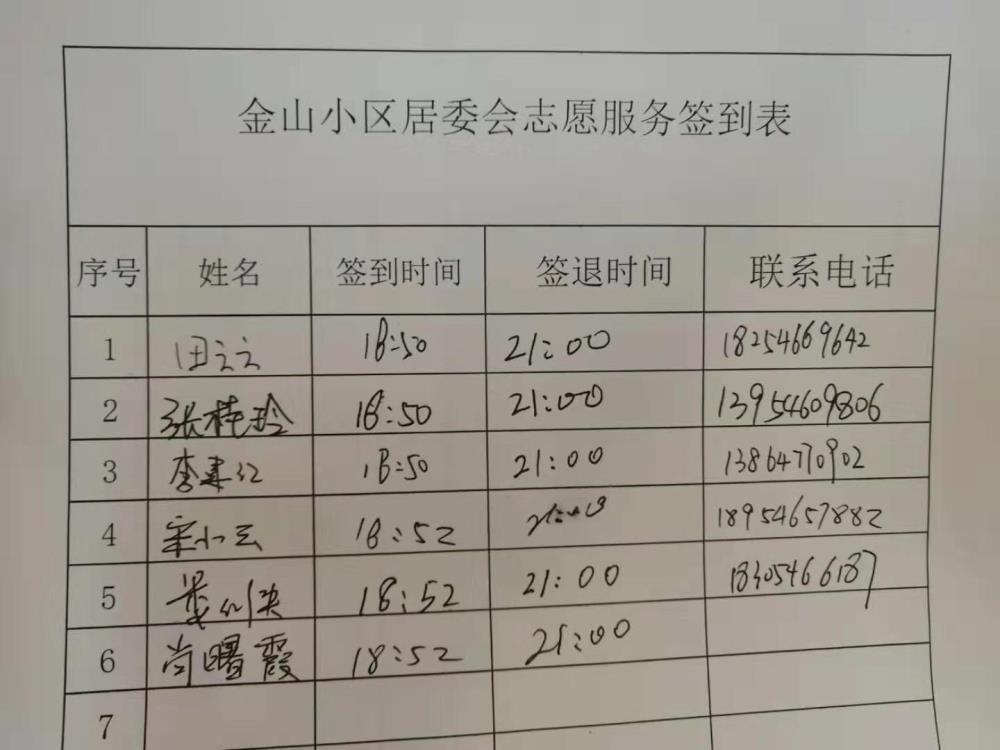 金山小区居委会志愿服务签到表
序号 姓名 签到时间 签退时间 联系电话
1 田云云 18:50 21:00 18254669642
2 张桂玲 18:50 21:00 13954609806
3 李建红 18:50 21:00 13864770902
4 宋小云 18:52 21:00 18954657882
5 18:52 21:00 18305466187
6 尚曙霞 18:52 21:00
7